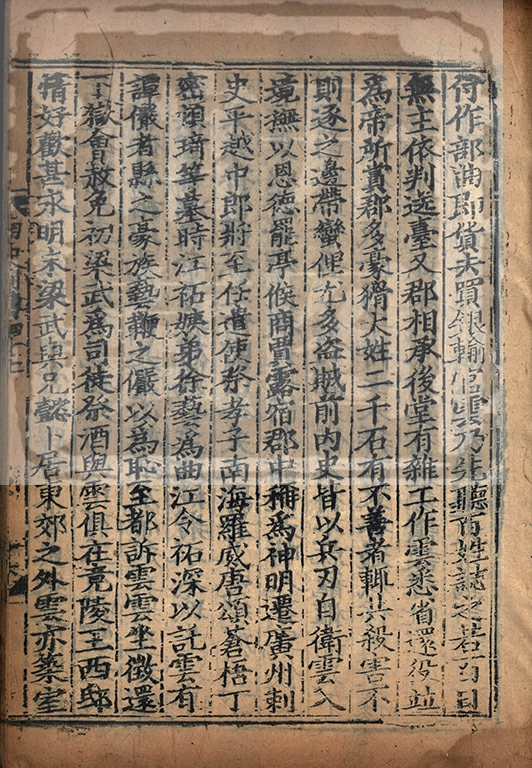 付作部曲即貨去買銀輸官雲乃先聽百姓誌之若百日
無主依判送臺又郡相承後堂有雜工作雲悉省還役並
為帝所賞郡多豪猾大姓二千石有不善者輒共殺害不
則逐之邊帶蠻俚尤多盜賊前内史皆以兵刃自衛雲入
境撫以恩德罷亭候商賈露宿郡中稱為神明遷廣州刺
史平越中郎將至任遣使祭孝子南海羅威唐頌蒼梧丁
密頓琦等墓時江祏姨弟徐藝為曲江令祏深以託雲有
譚儼者縣之豪族藝鞭之儼以為恥至都訴雲雲坐徵還
下獄會赦免初梁武為司徒祭酒與雲俱在竟陵王西邸
情好歡甚永明末梁武與兄懿卜居東郊之外雲亦築室